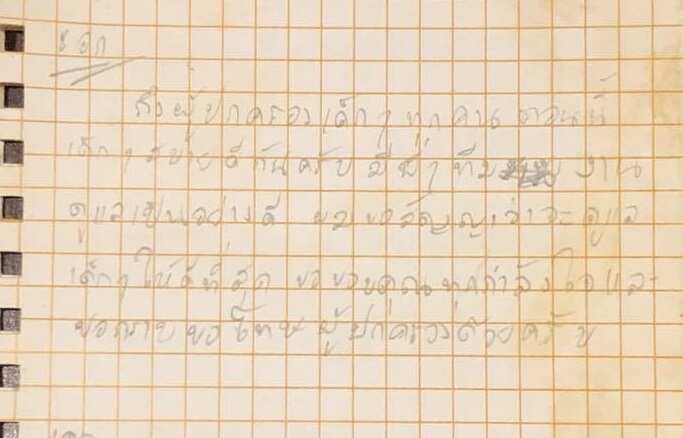 จ เอก
ถึงผู้ปกครองเด็กๆทุกคน ตอนนี้
เด็กๆสบายดีกันครับ มีพี่ๆทีม งาน
ดูแลเป็นอย่างดี ผมขอสัญญาว่าจะดูแล
เด็กๆให้ดีที่สุด ขอขอบคุณทุกกำลังใจและ
ขอกราบขอโทษผู้ปกครองด้วยครับ